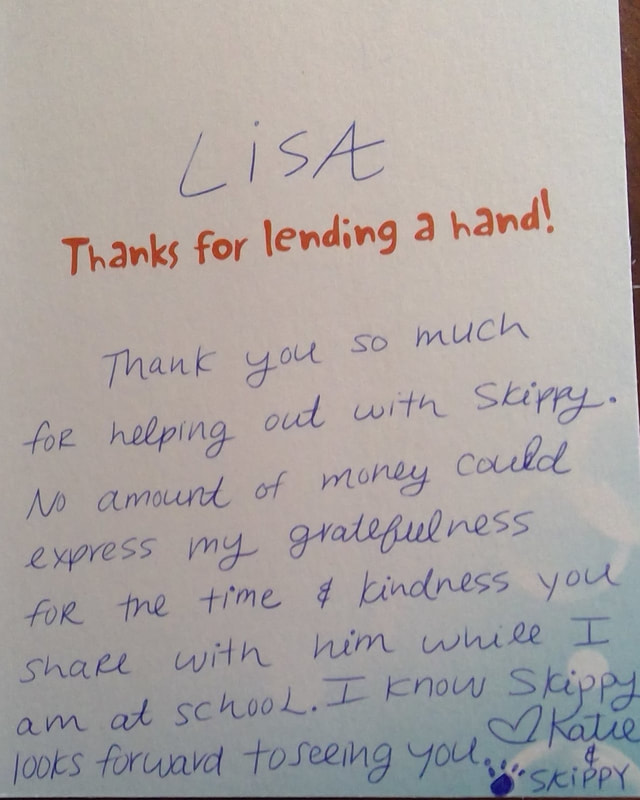 LiSA
Thanks for lending a hand!
Thank you so much
for helping out with Skippy.
No amount of money could
express my gratefulness
for the time & kindness you
share with him while I
am at school. I know Skippy
looks forward to seeing you. ♡Katie
&
SKiPPY